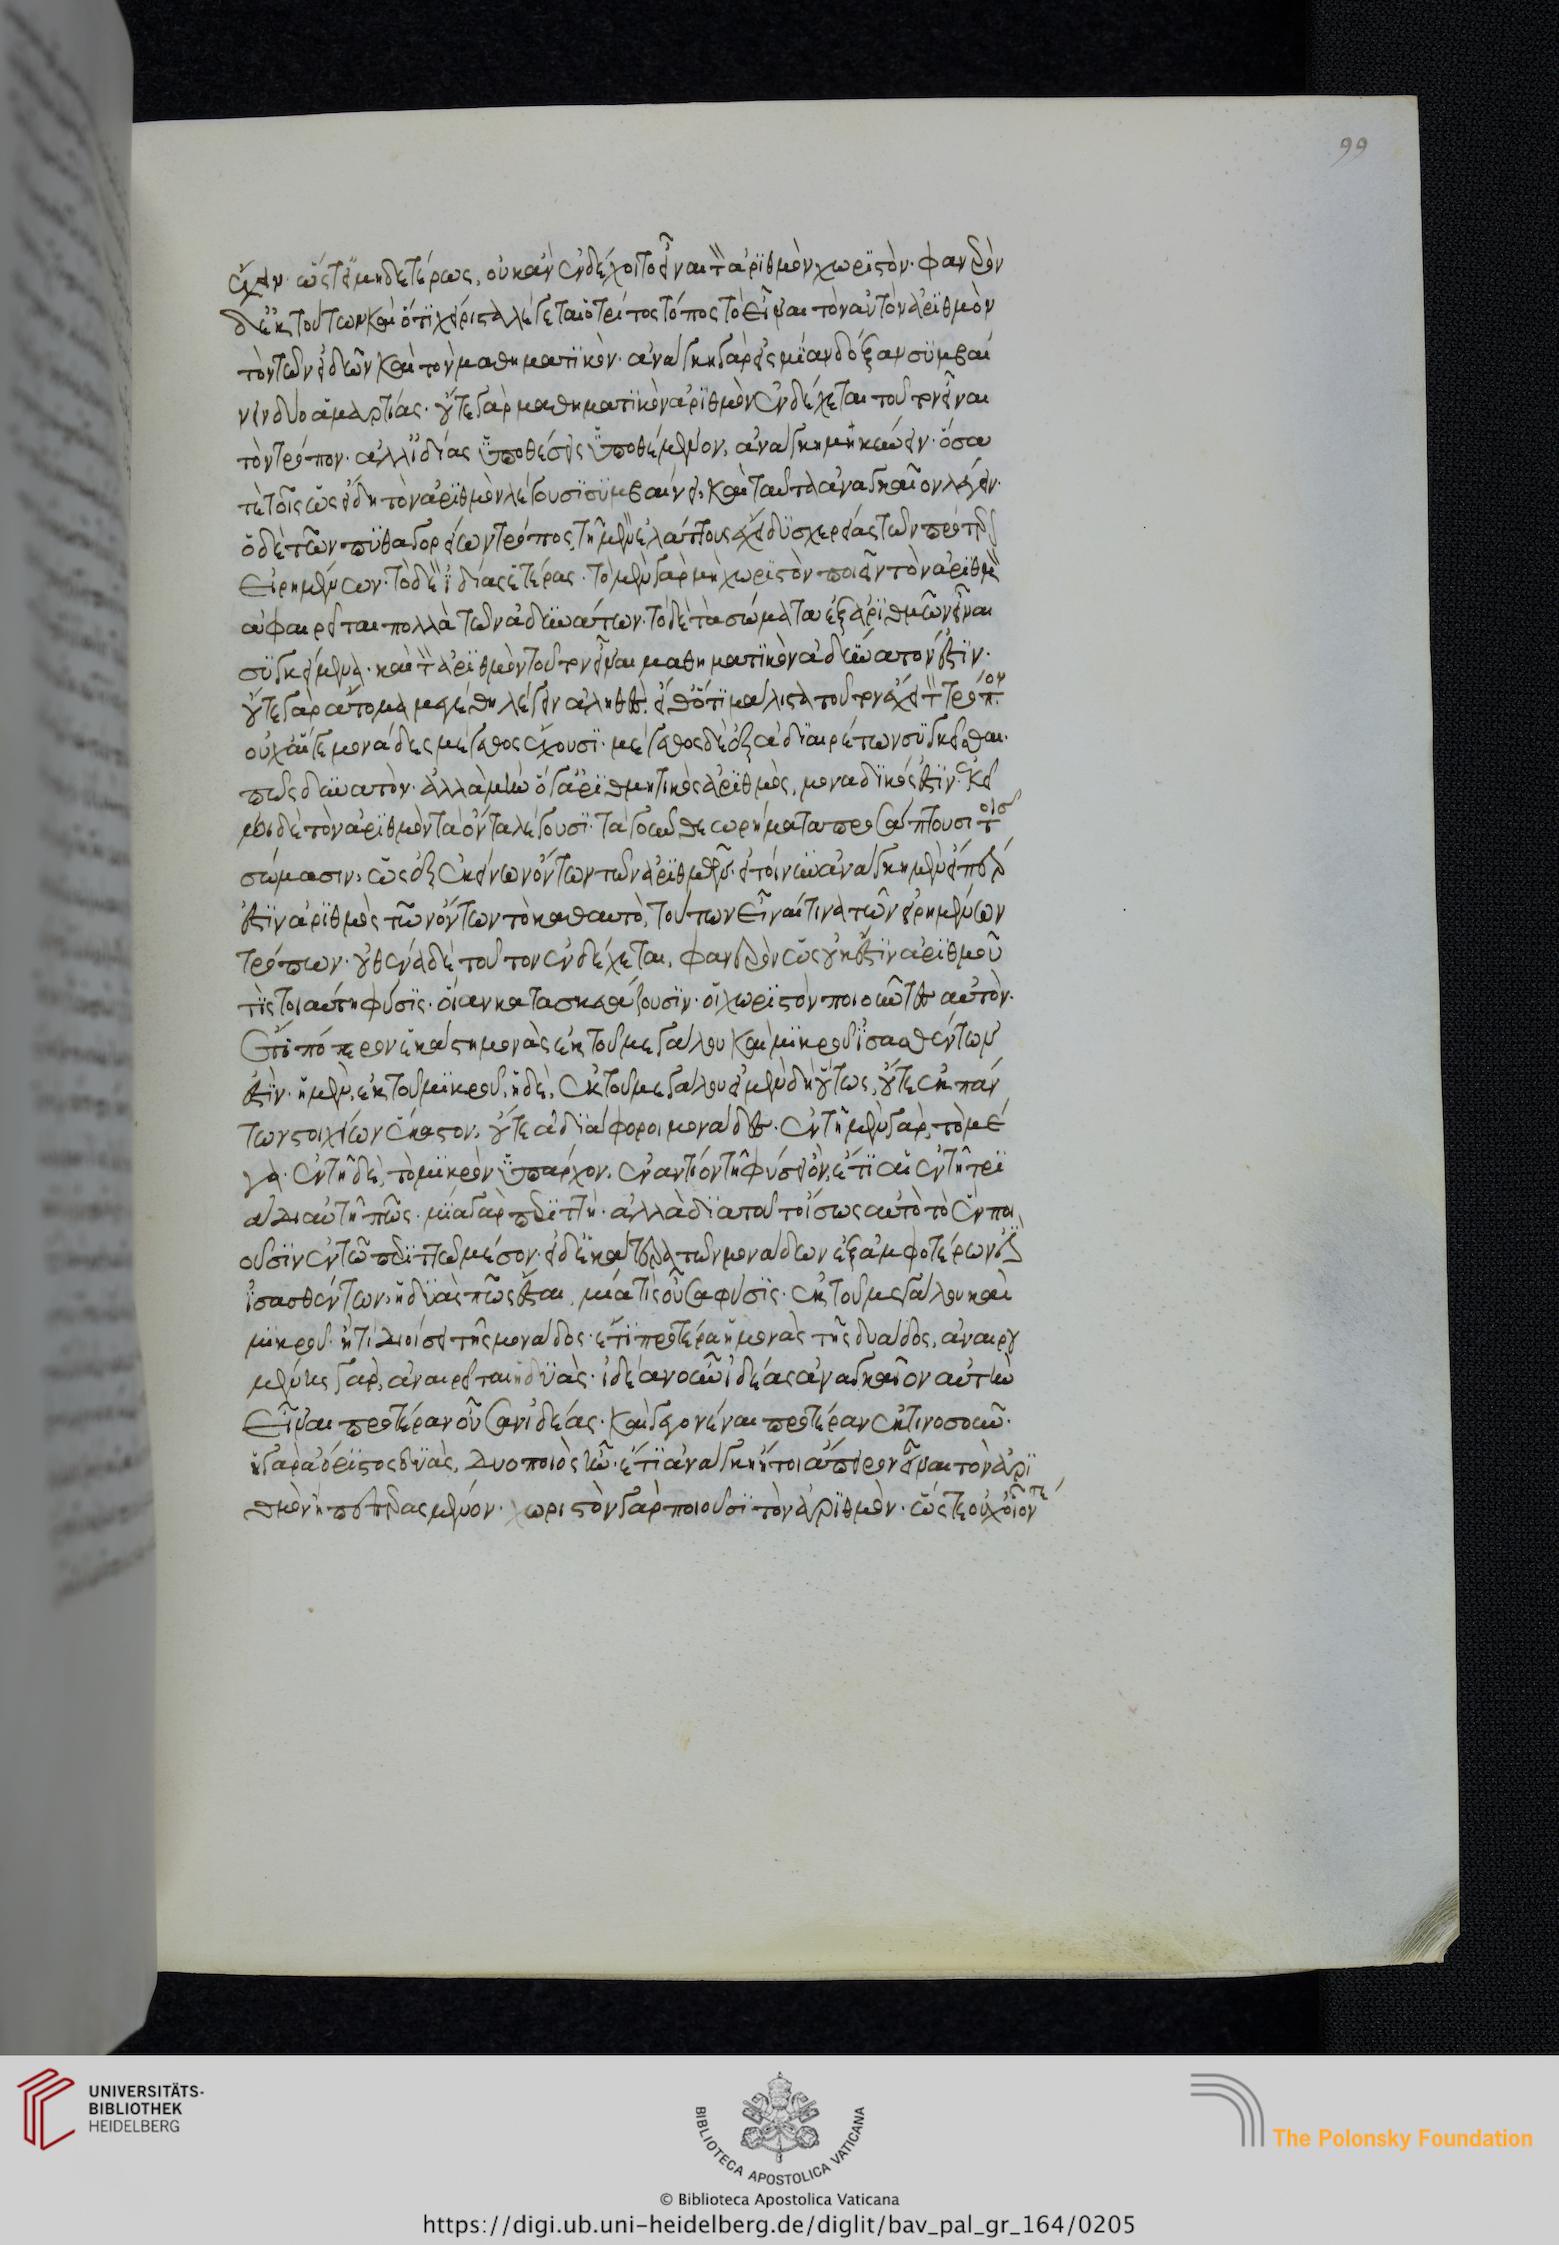 ἔχειν· ὥστ' εἰ μηδετέρως, οὐκ ἂν ἐνδέχοιτο εἶναι τὸν ἀριθμὸν χωριστὸν· φανερὸν
δὲ ἐκ τούτων καὶ ὅτι χείριστα λέγεται ὁ τρίτος τόπος τὸ εἶναι τὸν αὐτὸν ἀριθμὸν
τὸν τῶν εἰδῶν καὶ τὸν μαθηματικὸν· ἀνάγκη γὰρ εἰς μίαν δόξαν συμβαί
νειν δύο ἁμαρτίας· οὔτε γὰρ μαθηματικὸν ἀριθμὸν ἐνδέχεται τοῦτον εἶναι
τὸν τρόπον· ἀλλ' ἰδίας ὑποθέσεις ὑποθέμενον, ἀνάγκη μηκύνειν· ὅσα
τὲ τοῖς ὡς εἴδη τὸν ἀριθμὸν λέγουσι συμβαίνει, καὶ ταῦτα ἀναγκαῖον λέγειν·
ὁ δὲ τῶν πυθαγορείων τρόπος, τῇ μὲν ἐλάττους ἔχει δυσχερείας τῶν πρότερον
εἰρημένων· τὸ δὲ ἰδίας ἑτέρας· τὸ μὲν γὰρ μὴ χωριστὸν ποιεῖν τὸν ἀριθμὸν
ἀφαιρεῖται πολλὰ τῶν ἀδυνάτων· τὸ δὲ τὰ σώματα ἐξ ἀριθμῶν εἶναι
συγκείμενα· καὶ τὸν ἀριθμὸν τοῦτον εἶναι μαθηματικὸν ἀδύνατόν ἐστιν·
οὔτε γὰρ ἄτομα μεγέθη λέγειν ἀληθές· εἴθ' ὅτι μάλιστα τοῦτον ἔχει τὸν τρόπον·
οὐχ αἵ γε μονάδες μέγεθος ἔχουσι· μέγεθος δὲ ἐξ ἀδιαιρέτων συγκεῖσθαι·
πῶς δυνατὸν· ἀλλὰ μὴν ὅ γ' ἀριθμητικὸς ἀριθμὸς, μοναδικός ἐστιν· ἐκεῖ
νοι δὲ τὸν ἀριθμὸν τὰ ὄντα λέγουσι· τὰ γοῦν θεωρήματα προσάπτουσι τοῖς
σώμασιν, ὡς ἐξ ἐκείνων ὄντων τῶν ἀριθμῶν· εἰ τοίνυν ἀνάγκη μὲν εἴπερ
ἐστὶν ἀριθμὸς τῶν ὄντων τὸ καθ αὑτὸ, τούτων εἶναί τινα τῶν εἰρημένων
τρόπων· οὐθένα δὲ τούτον ἐνδέχεται, φανερὸν ὡς οὐκ ἔστιν ἀριθμοῦ
τὶς τοιαύτη φύσις· οἵαν κατασκευάζουσιν· οἱ χωριστὸν ποιοῦντες αὐτὸν·
ἔτι πότερον ἑκάστη μονὰς ἐκ τοῦ μεγάλου καὶ μικροῦ ἰσασθέντων
ἐστίν· ἢ μὲν, ἐκ τοῦ μικροῦ, ἡ δὲ, ἐκ τοῦ μεγάλου εἰ μὲν δὴ οὕτως, οὔτε ἐκ πάν
των στοιχείων ἕκαστον, οὔτε ἀδιάφοροι μονάδες· ἐν τῇ μὲν γὰρ, τὸ μέ
γα· ἐν τῇ δὲ, τὸ μικρὸν ὑπάρχον, ἐναντίον τῇ φύσει ὂν, ἔτι αἱ ἐν τῇ τρι
άδι αὐτῇ πῶς· μία γὰρ περιττή· ἀλλὰ διὰ τοῦτο ἴσως αὐτὸ τὸ ἓν ποι
οῦσιν ἐν τῷ περιττῷ μέσον· εἰ δὲ ἑκατέρα τῶν μονάδων ἐξ ἀμφοτέρων ἐστὶν
ἰσασθέντων, ἡ δυὰς πῶς ἔσται, μία τὶς οὖσα φύσις· ἐκ τοῦ μεγάλου καὶ
μικροῦ· ἢ τί διοίσει τῆς μονάδος· ἔτι προτέρα ἡ μονὰς τῆς δυάδος, ἀναιρου
μένης γὰρ, ἀναιρεῖται ἡ δυὰς· ἰδέαν οὖν ἰδέας ἀναγκαῖον αὐτὴν
εἶναι προτέραν οὖσαν ἰδέας· καὶ γεγονέναι προτέραν ἐκ τίνος οὖν·
ἡ γὰρ ἀόριστος δυὰς, δυοποιὸς ἦν· ἔτι ἀνάγκη ἤτοι ἄπειρον εἶναι τὸν ἀρι
θμὸν ἢ πεπερασμένον· χωριστὸν γὰρ ποιοῦσι τὸν ἀριθμὸν· ὥστε οὐχ οἷόν τε
99
UNIVERSITÄTS-
BIBLIOTHEK
HEIDELBERG
BIBLIOTECA APOSTOLICA VATICANA
The Polonsky Foundation
© Biblioteca Apostolica Vaticana
https://digi.ub.uni-heidelberg.de/diglit/bav_pal_gr_164/0205